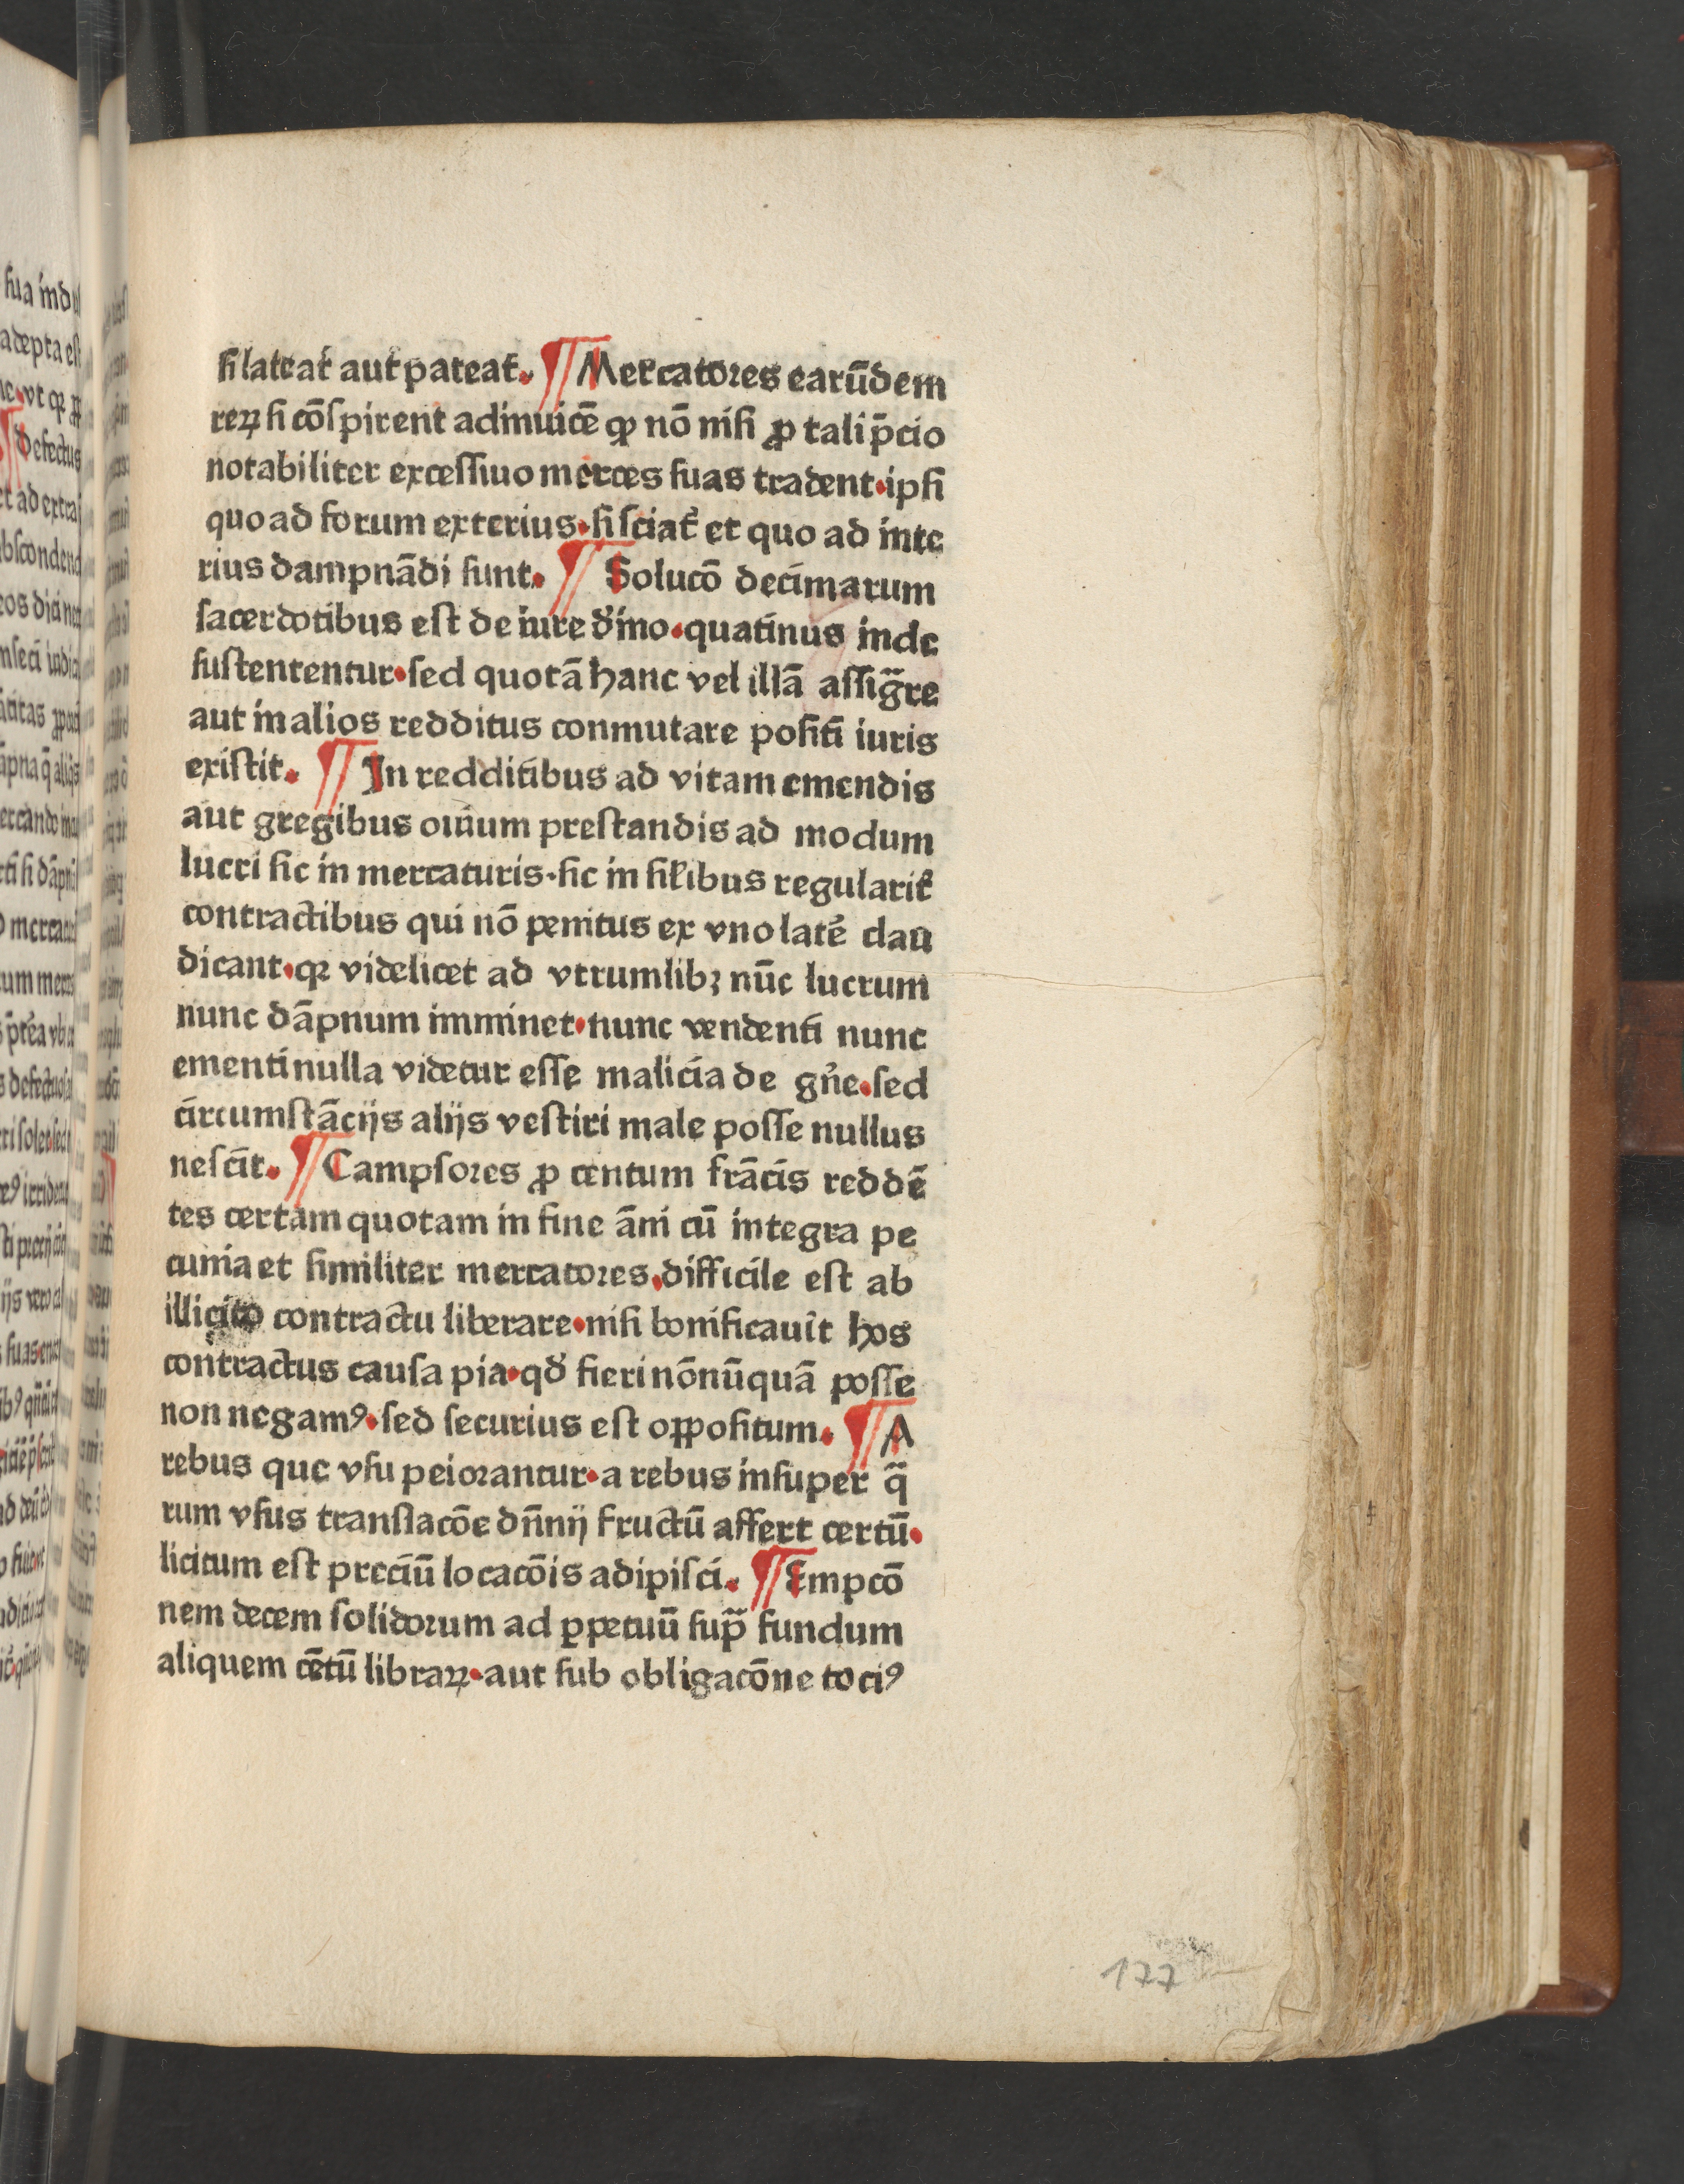 ſi lateat᷑ aut pateat᷑. ¶ Mercatores earūdem
reꝝ ſi cōſpirent adinuicē ꝙ nō niſi ꝓ tali p̄cio
notabiliter exceſſiuo merces ſuas tradent·ipſi
quo ad forum exterius·ſi ſciat᷑ et quo ad inte
rius dampnādi ſunt. ¶ Solucō decimarum
ſacerdotibus eſt de iure diͦino·quatinus inde
ſuſtententur·ſed quotā hanc vel illā aſſigr̄e
aut in alios redditus conmutare poſiti iuris
exiſtit. ¶ In redditibus ad vitam emendis
aut gregibus ouium preſtandis ad modum
lucri ſic in mercaturis·ſic in ſil̄ibus regularit᷑
contractibus qui nō penitus ex vno late᷑ clau
dicant·qꝛ videlicet ad vtrumlibꝫ nūc lucrum
nunc dāpnum imminet·nunc vendenti nunc
ementi nulla videtur eſſe malicia de gn̄e·ſed
circumſtācijs alijs veſtiri male poſſe nullus
neſcit. ¶ Campſores ꝓ centum frācis reddē
tes certam quotam in fine āni cū integra pe
cunia et ſimiliter mercatores·difficile eſt ab
illicito contractu liberare·niſi bonificauit hos
contractus cauſa pia·qd̕ fieri nōnūquā poſſe
non negamꝰ·ſed ſecurius eſt oppoſitum. ¶ A
rebus que vſu peiorantur·a rebus inſuper q̄
rum vſus tranſlacōe dn̄ij fructū affert certū·
licitum eſt preciū locacōis adipiſci. ¶ Empcō
nem decem ſolidorum ad ꝑpetuū ſup̄ fundum
aliquem cētū libraꝝ·aut ſub obligacōne tociꝰ
177